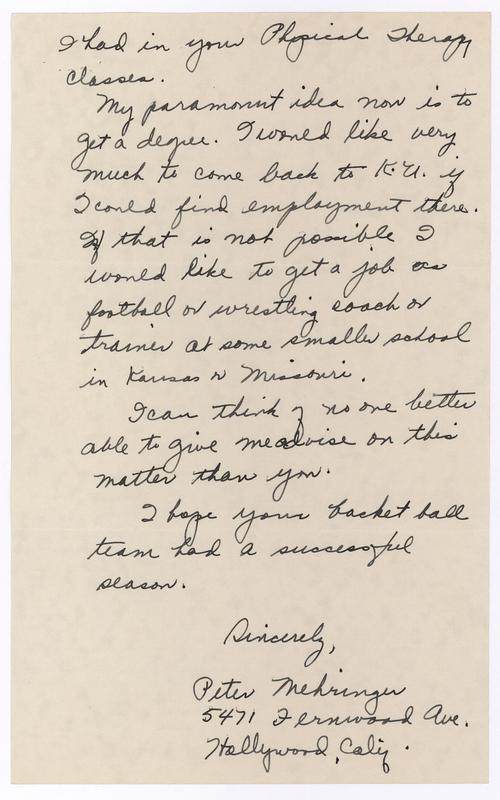 I had in your Physical Therapy
classes.
My paramount idea now is to
get a degree. I would like very
much to come back to K.U. if
I could find employment there.
If that is not possible I
would like to get a job as
football or wrestling coach or
trainer at some smaller school
in Kansas or Missouri.
I can think of no one better
able to give me advise on this
matter than you.
I hope your basket ball
team had a successful
season.
Sincerely,
Peter Mehringer
5471 Fernwood Ave.
Hollywood, Calif.